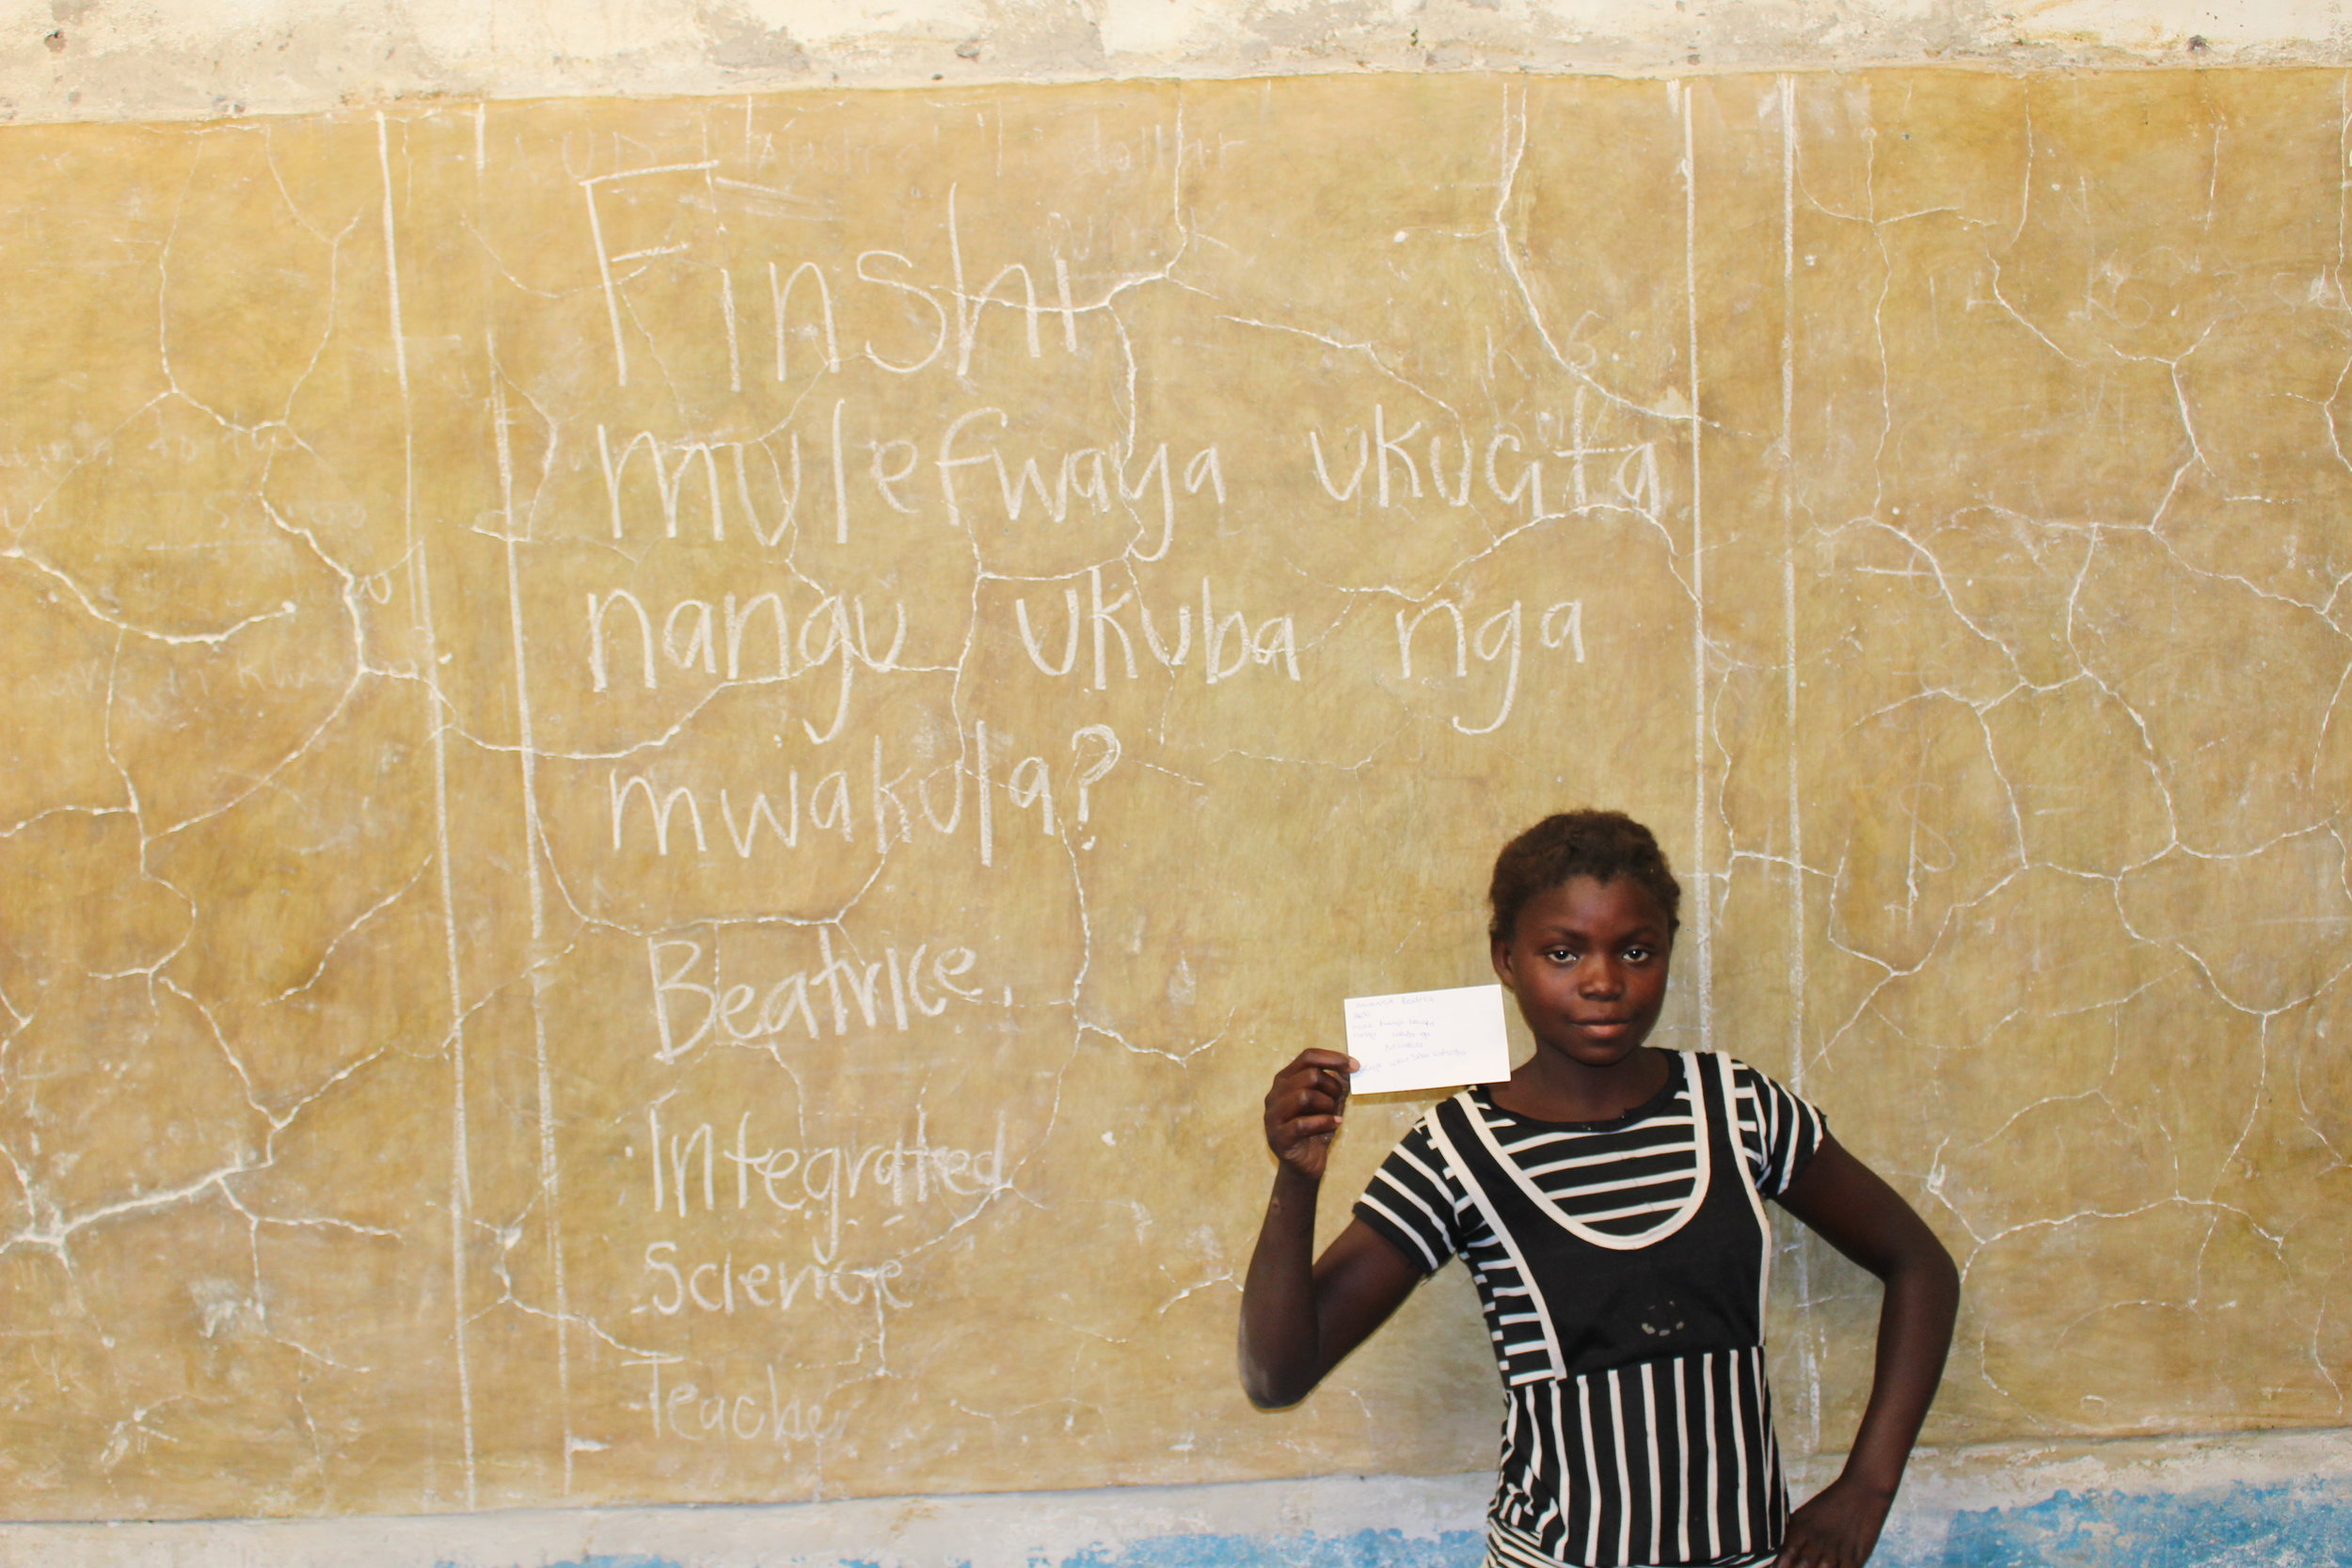 Finshi
mulefwaya ukucita
nangu ukuba nga
mwakula?
Beatrice.
Integrated
Science
Teacher